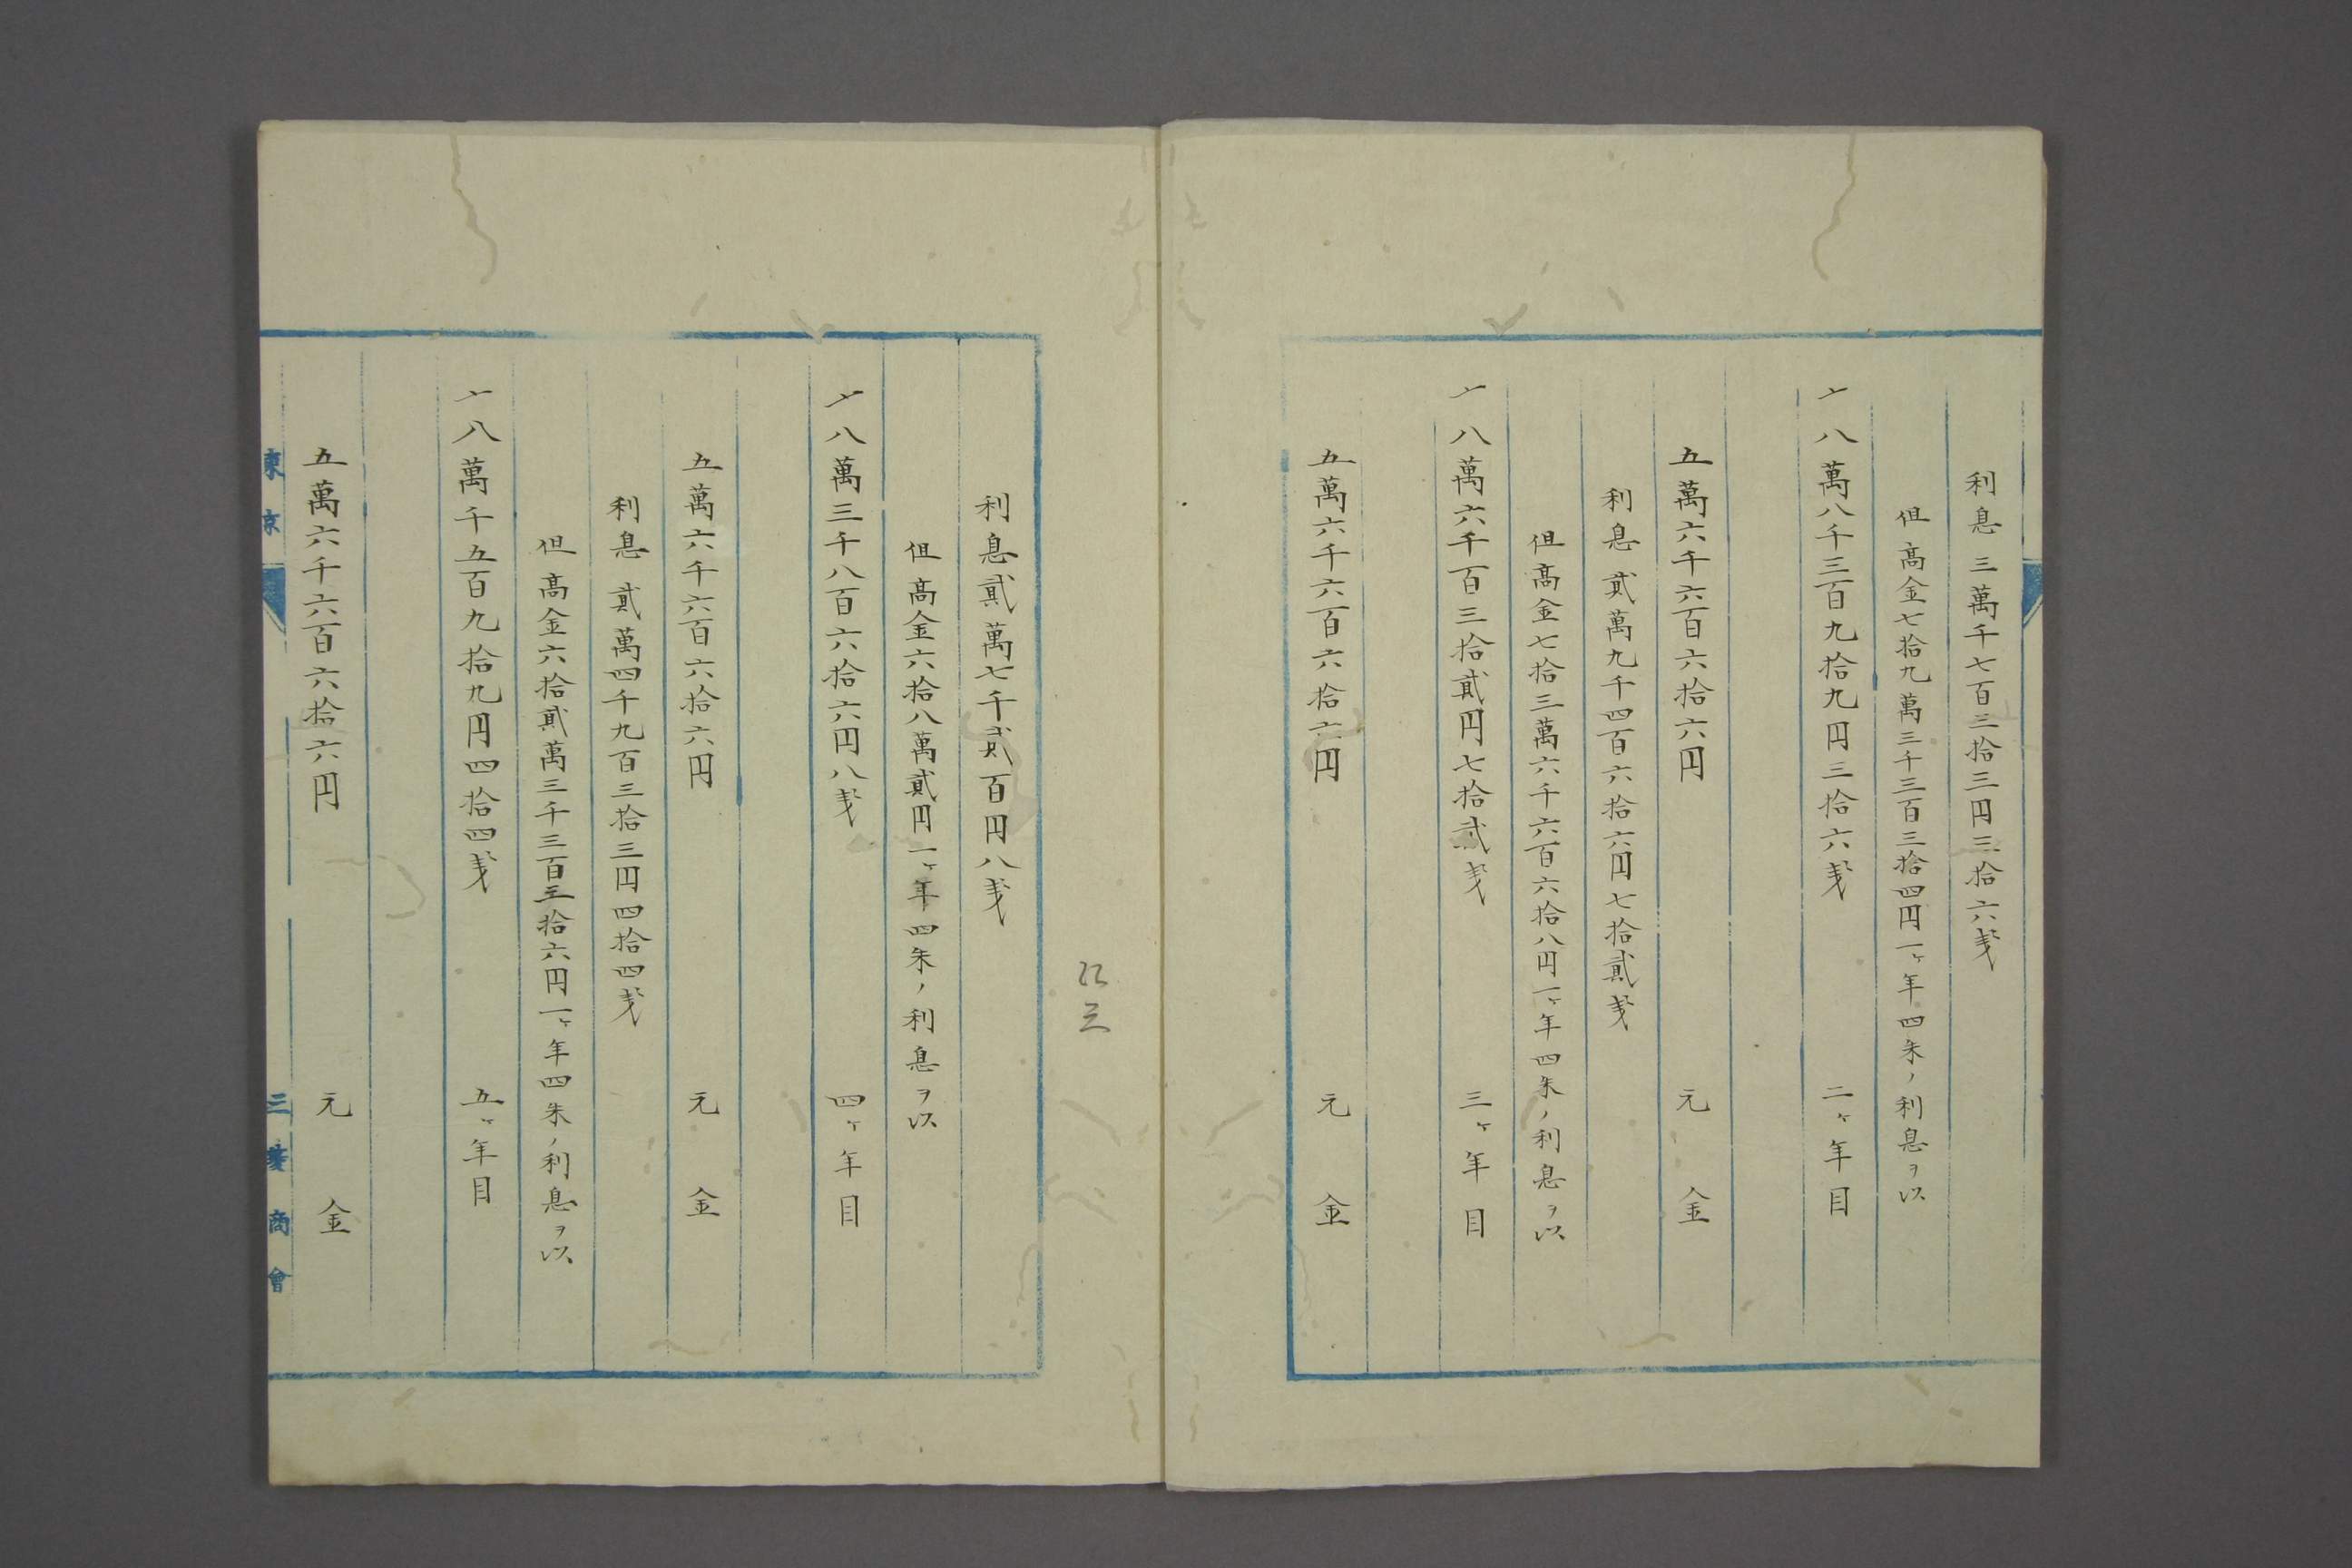 利息三萬千七百三拾三円三拾六戔
但高金七拾九萬三千三百三拾四円一ヶ年四朱ノ利息ヲ以
〆八萬八千三百九拾九円三拾六戔 二ヶ年目
五萬六千六百六拾六円 元金
利息貳萬九千四百六拾六円七拾貳戔
但高金七拾三萬六千六百六拾八円一ヶ年四朱ノ利息ヲ以
〆八萬六千百三拾貳円七拾弐戔 三ヶ年目
五萬六千六百六拾六円 元金
利息貳萬七千貳百円八戔
但高金六拾八萬貳円一ヶ年四朱ノ利息ヲ以
〆八萬三千八百六拾六円八戔 四ヶ年目
五萬六千六百六拾六円 元金
利息貳萬四千九百三拾三円四拾四戔
但高金六拾貳萬三千三百三拾六円一ヶ年四朱ノ利息ヲ以
〆八萬千五百九拾九円四拾四戔 五ヶ年目
五萬六千六百六拾六円 元金
東京 三菱商會